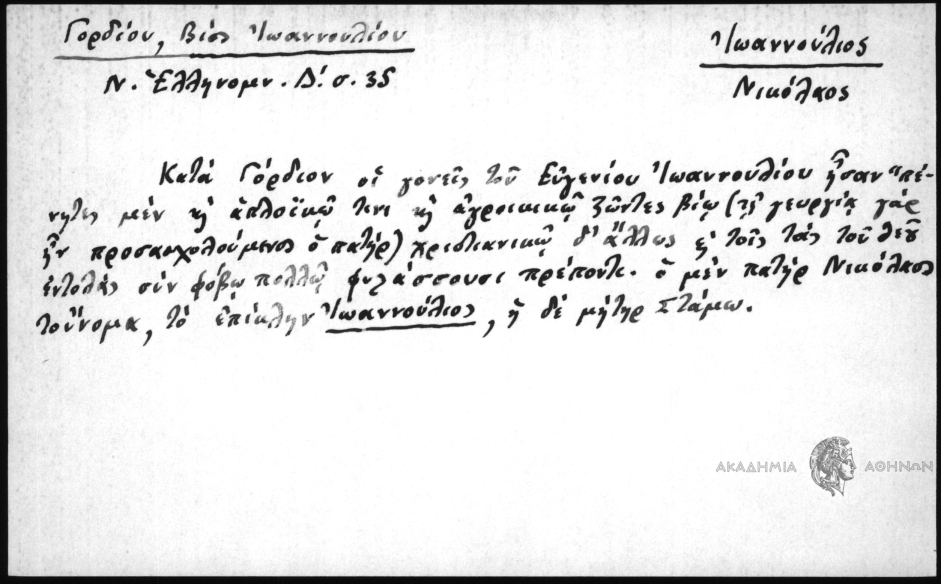 Γορδίου, Βίος Ἰωαννουλίου
Ν. Ἑλληνομν. Δ΄. σ. 35
Ἰωαννούλιος
Νικόλαος
Κατά Γόρδιον οἱ γονεῖς τοῦ Εὐγενίου Ἰωαννουλίου ἦσαν "πέ-
νητες μέν κ ἁπλοϊκῷ τινι κ ἀγροικικῷ ζῶντες βίῳ (τῇ γεωργίᾳ γάρ
ἦν προσασχολούμενος ὁ πατήρ) χριστιανικῷ δ' ἄλλως κ τοῖς τάς τοῦ Θεοῦ
ἐντολάς σύν φόβῳ πολλῷ φυλάσσουσι πρέποντι. ὁ μέν πατήρ Νικόλαος
τοὔνομα, τό ἐπίκλην Ἰωαννούλιος, ἡ δέ μήτηρ Στάμω.
ΑΚΑΔΗΜΙΑ ΑΘΗΝΩΝ